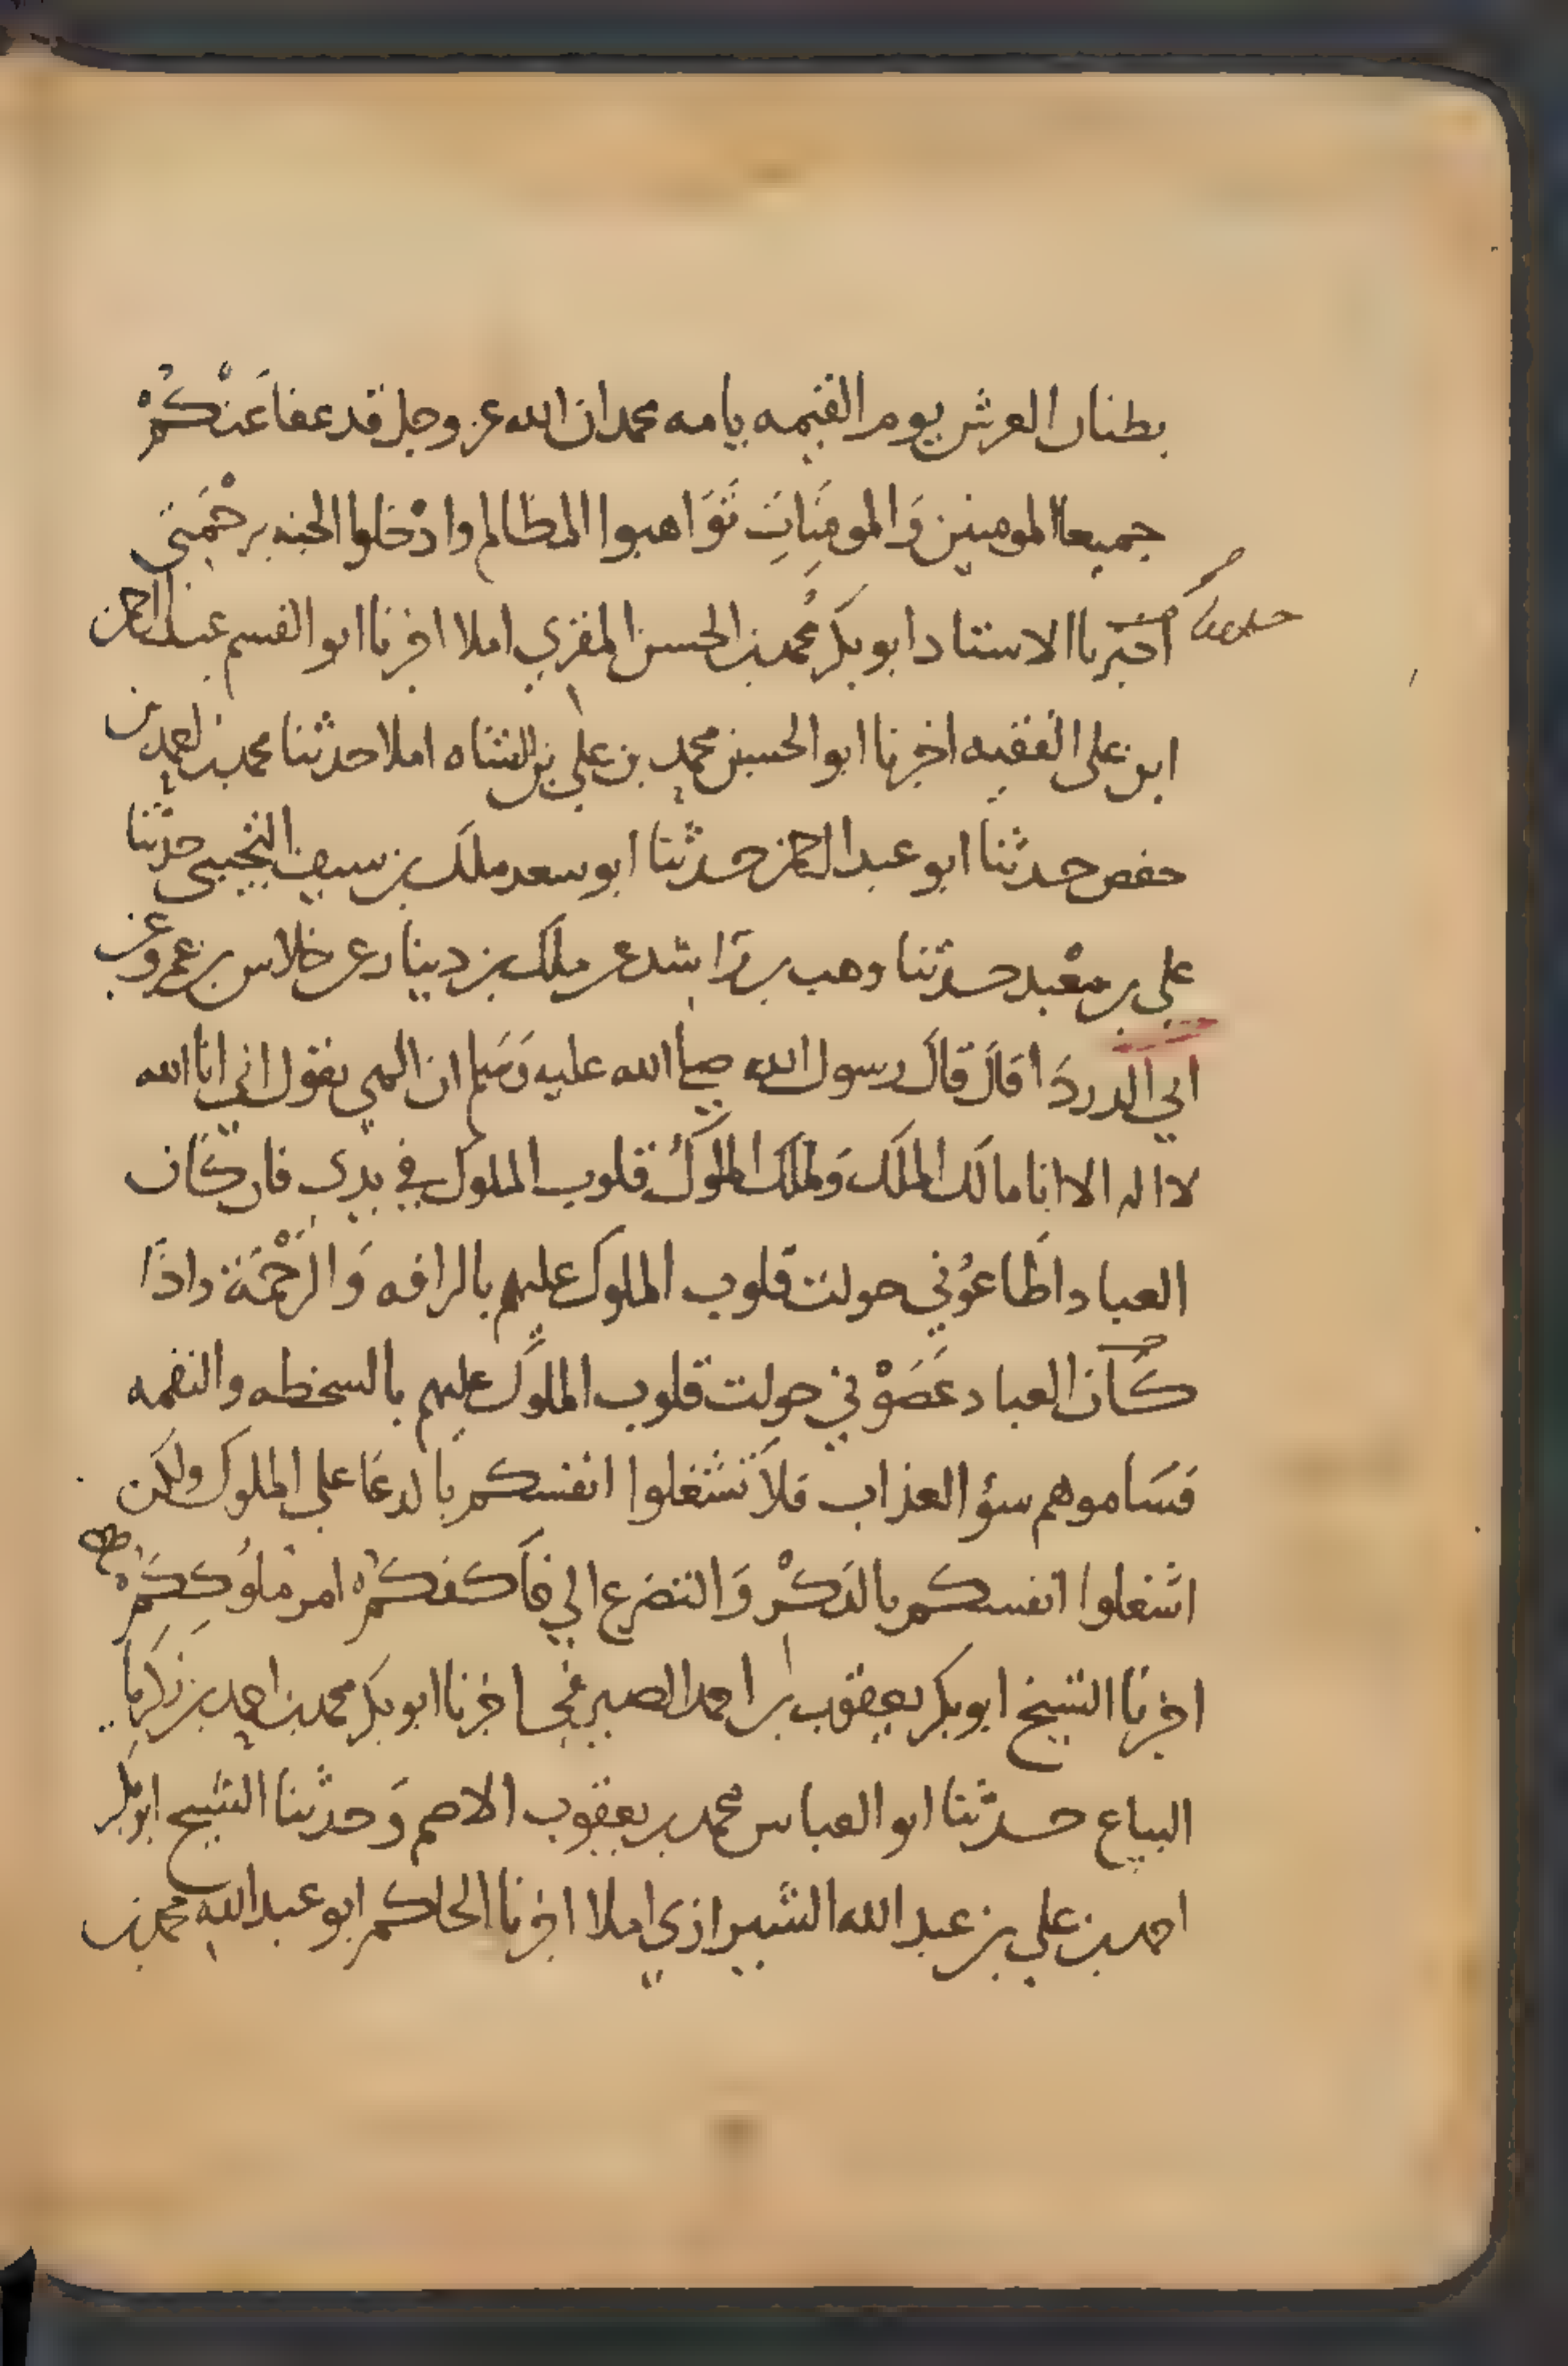 بطنان العرش يوم القيمه يامه محمد ان الله عز وجل قد عفا عَنْكُمْ
جميعا المومنين وَالمومِنَاتِ تَوَاهبوا المظالم وادْخلوا الجنه برحْمَتي
اخبرنا الاستاد ابو بكر محمد بن الحسن المقري املا اخبرنا ابو القسم عبد الرحمن
ابن على الفقيه اخبرنا ابو الحسين محمد بن علي بن الشاه املا حدثنا محمد بن احمد بن
حفص حدثنا ابو عبد الرحمن حدثنا ابو سعد ملك بن سيف التجيبي حدثنا
علي بن معْبد حدثنا وهب بن رَاشد عن ملك بن دينار عن خلاس بن عمرو عن
ابي الدردَا قَالَ قَالَ رسول الله صلى الله عليه وَسَلم ان الهي يقول اني انا الله
لا اله الا انا مالك الملَك وَملك الملوك قلوب الملوك في يدى فان كَان
العباد اطَاعوُني حولت قلوب الملوك عليهم بالرافه وَالرَحْمَة واذَا
كَان العباد عَصَوْني حولت قلوب الملوك عليهم بالسخطه والنقمه
فسَاموهم سؤ العذاب فلاَ تشغلوا انفسكم بالدعَا على الملوك ولكن
اشغلوا انفسكم بالذكْر وَالتضرع الي فاَكفكمْ امر ملوككمْ
اخبرنا الشيخ ابو بكر يعقوب بن احمد الصيرفي اخبرنا ابو بكر محمد بن احمد بن زكريا
البياع حدثنا ابو العباس محمد بن يعقوب الاصم وَحدثنا الشيخ ابو بكر
احمد بن علي بن عبد الله الشيرازي املا اخبرنا الحاكم ابو عبد الله محمد بن